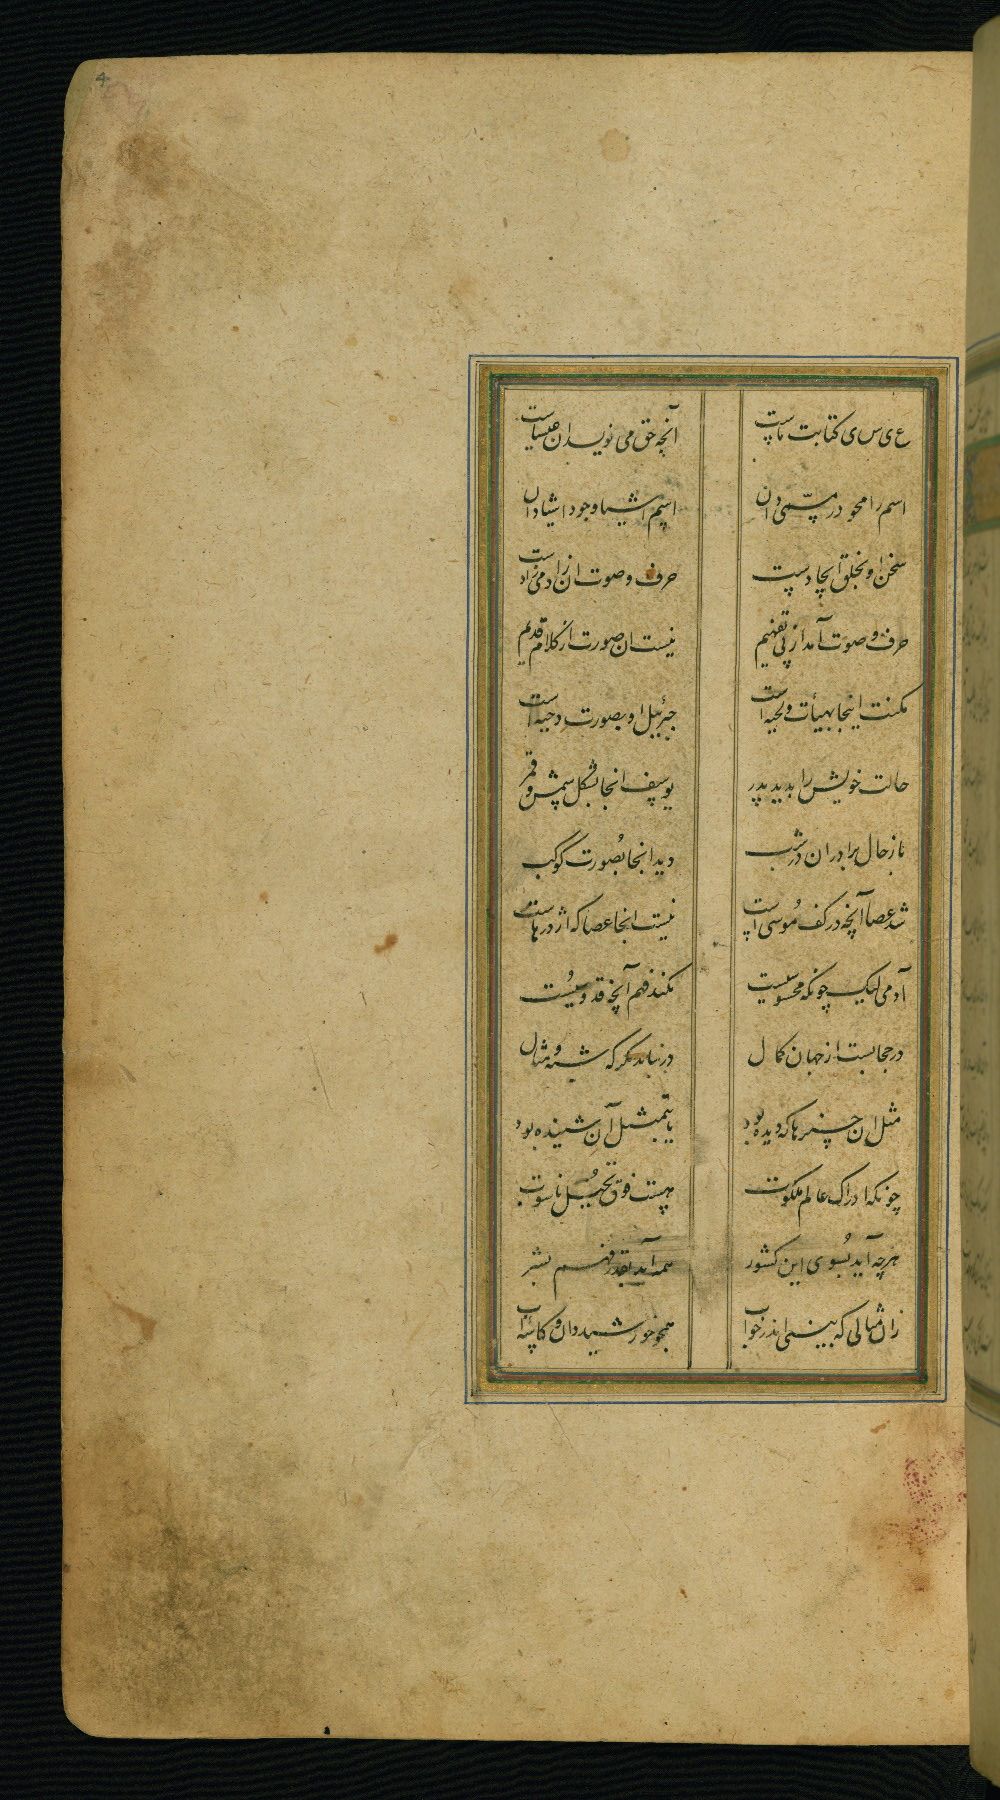 4
ع ی س ی کتابت ماست
آنچه حق می نویسد ان عیساست
اسم را محو در مسمی دان
اسم اشیا وجود اشیا دان
سخن او بخلق ایجادست
حرف و صوت ان زادمی زادست
حرف و صوت آمد از پی تفهیم
نیست ان صورت از کلام قدیم
مکنت اینجا بهیأت ولحیه است
جبرئیل او بصورت دحیه است
حالت خویش را بدید پدر
یوسف انجا بشکل شمس و قمر
باز حال برادران در شب
دید انجا بصورت کوکب
شد عصا آنچه در کف موسی است
نیست انجا عصا که اژدرهاست
آدمی لیک چونکه محسوسیست
نکند فهم آنچه قدوسیست
در حجابست از جهان کمال
در نیابد مکر که شبه و مثال
مثل ان چیزها که دیده بود
یا بتمثیل آن شنیده بود
چونکه ادراک عالم ملکوت
هست فوق تخیل ناسوت
هرچه آید بسوی این کشور
همه آید بقدر فهم بشر
زان مثالی که بینی اندر خواب
همچو خورشید دان و کاسه آب